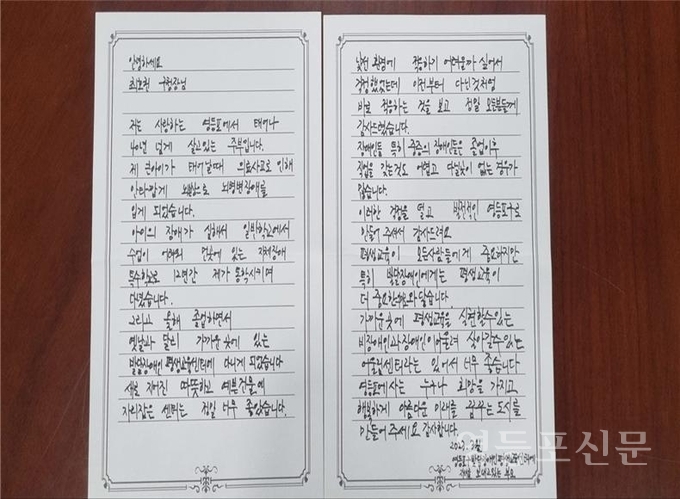 안녕하세요
최호권 구청장님
저는 사랑하는 영등포에서 태어나
40년 넘게 살고있는 주부입니다.
제 큰아이가 태어날때 의료사고로 인해
안타깝게 뇌병변장애를
입게 되었습니다.
아이의 장애가 심해서 일반학교에서
수업이 어려워 먼곳에 있는 지체장애
특수학교로 12년간 제가 통학시키며
다녔습니다.
그리고 올해 졸업하면서
옛날과는 달리 가까운 곳에 있는
발달장애인 평생교육센터에 다니게 되었습니다
새로 지어진 따뜻하고 예쁜건물에
자리잡은 센터는 정말 너무 좋았습니다.
낯선 환경에 적응하기 어려울까 싶어서
걱정했었는데 이전부터 다닌것처럼
바로 적응하는 것을 보고 정말 모든분들께
감사드렸습니다.
장애인들 특히 중증의 장애인들은 졸업이후
직업을 갖는것도 어렵고 다닐곳이 없는 경우가
많습니다.
이러한 걱정을 덜고 발전적인 영등포구로
만들어 주셔서 감사드려요
평생교육이 모든사람들에게 중요하지만
특히 발달장애인에게는 평생교육이
더 중요한 와닿습니다.
가까운곳에 평생교육을 실현할수있는
비장애인과 장애인이 어울려 살아갈수있는
어울림센터라는 있어서 너무 좋습니다
영등포에사는 누구나 희망을 가지고
행복하게 아름다운 미래를 꿈꾸는 도시를
만들어 주세요 감사합니다.
영등포 발달장애인평생교육센터에
영등포신문